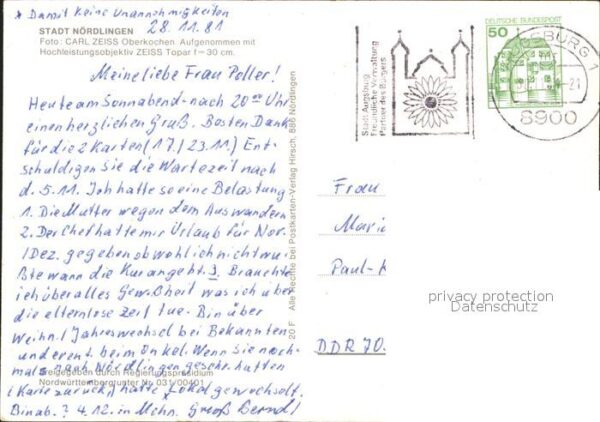 * Damit keine Unannehmigkeiten
28.11.81
STADT NÖRDLINGEN
Foto: CARL ZEISS Oberkochen. Aufgenommen mit
Hochleistungsobjektiv ZEISS Topar f = 30 cm.
Meine liebe Frau Peller!
Heute am Sonnabend nach 20 00 Uhr
einen herzlichen Gruß. Besten Dank
für die 2 Karten (17./23.11) Ent-
schuldigen Sie die Wartezeit nach
d. 5.11. Ich hatte so eine Belastung
1. Die Mutter wegen dem Auswandern
2. Der Chef hatte mir Urlaub für Nov.
/Dez. gegeben obwohl ich nicht wu-
ßte wann die Kur angeht. 3. Brauchte
ich über alles Gewißheit was ich über
die elternlose Zeit tue. Bin über
Weihn./Jahreswechsel bei Bekannten
und event. beim Onkel. Wenn Sie noch-
mals nach Nördlingen geschr. hätten
Freigegeben durch Regierungspräsidium
Nordwürttemberg unter Nr. 031/00401
(Karte zurück) hatte Lokal gewechselt.
Bin ab ? 4.12. in Mchn. Gruß Bernd/
20 F Alle Rechte bei Postkarten-Verlag Hirsch, 886 Nördlingen
Stadt Augsburg
Freundliche Verwaltung
Partner des Bürgers
DEUTSCHE BUNDESPOST
50
AUGSBURG 1
8900
Frau
Mari
Paul-
DDR 70.
privacy protection
Datenschutz